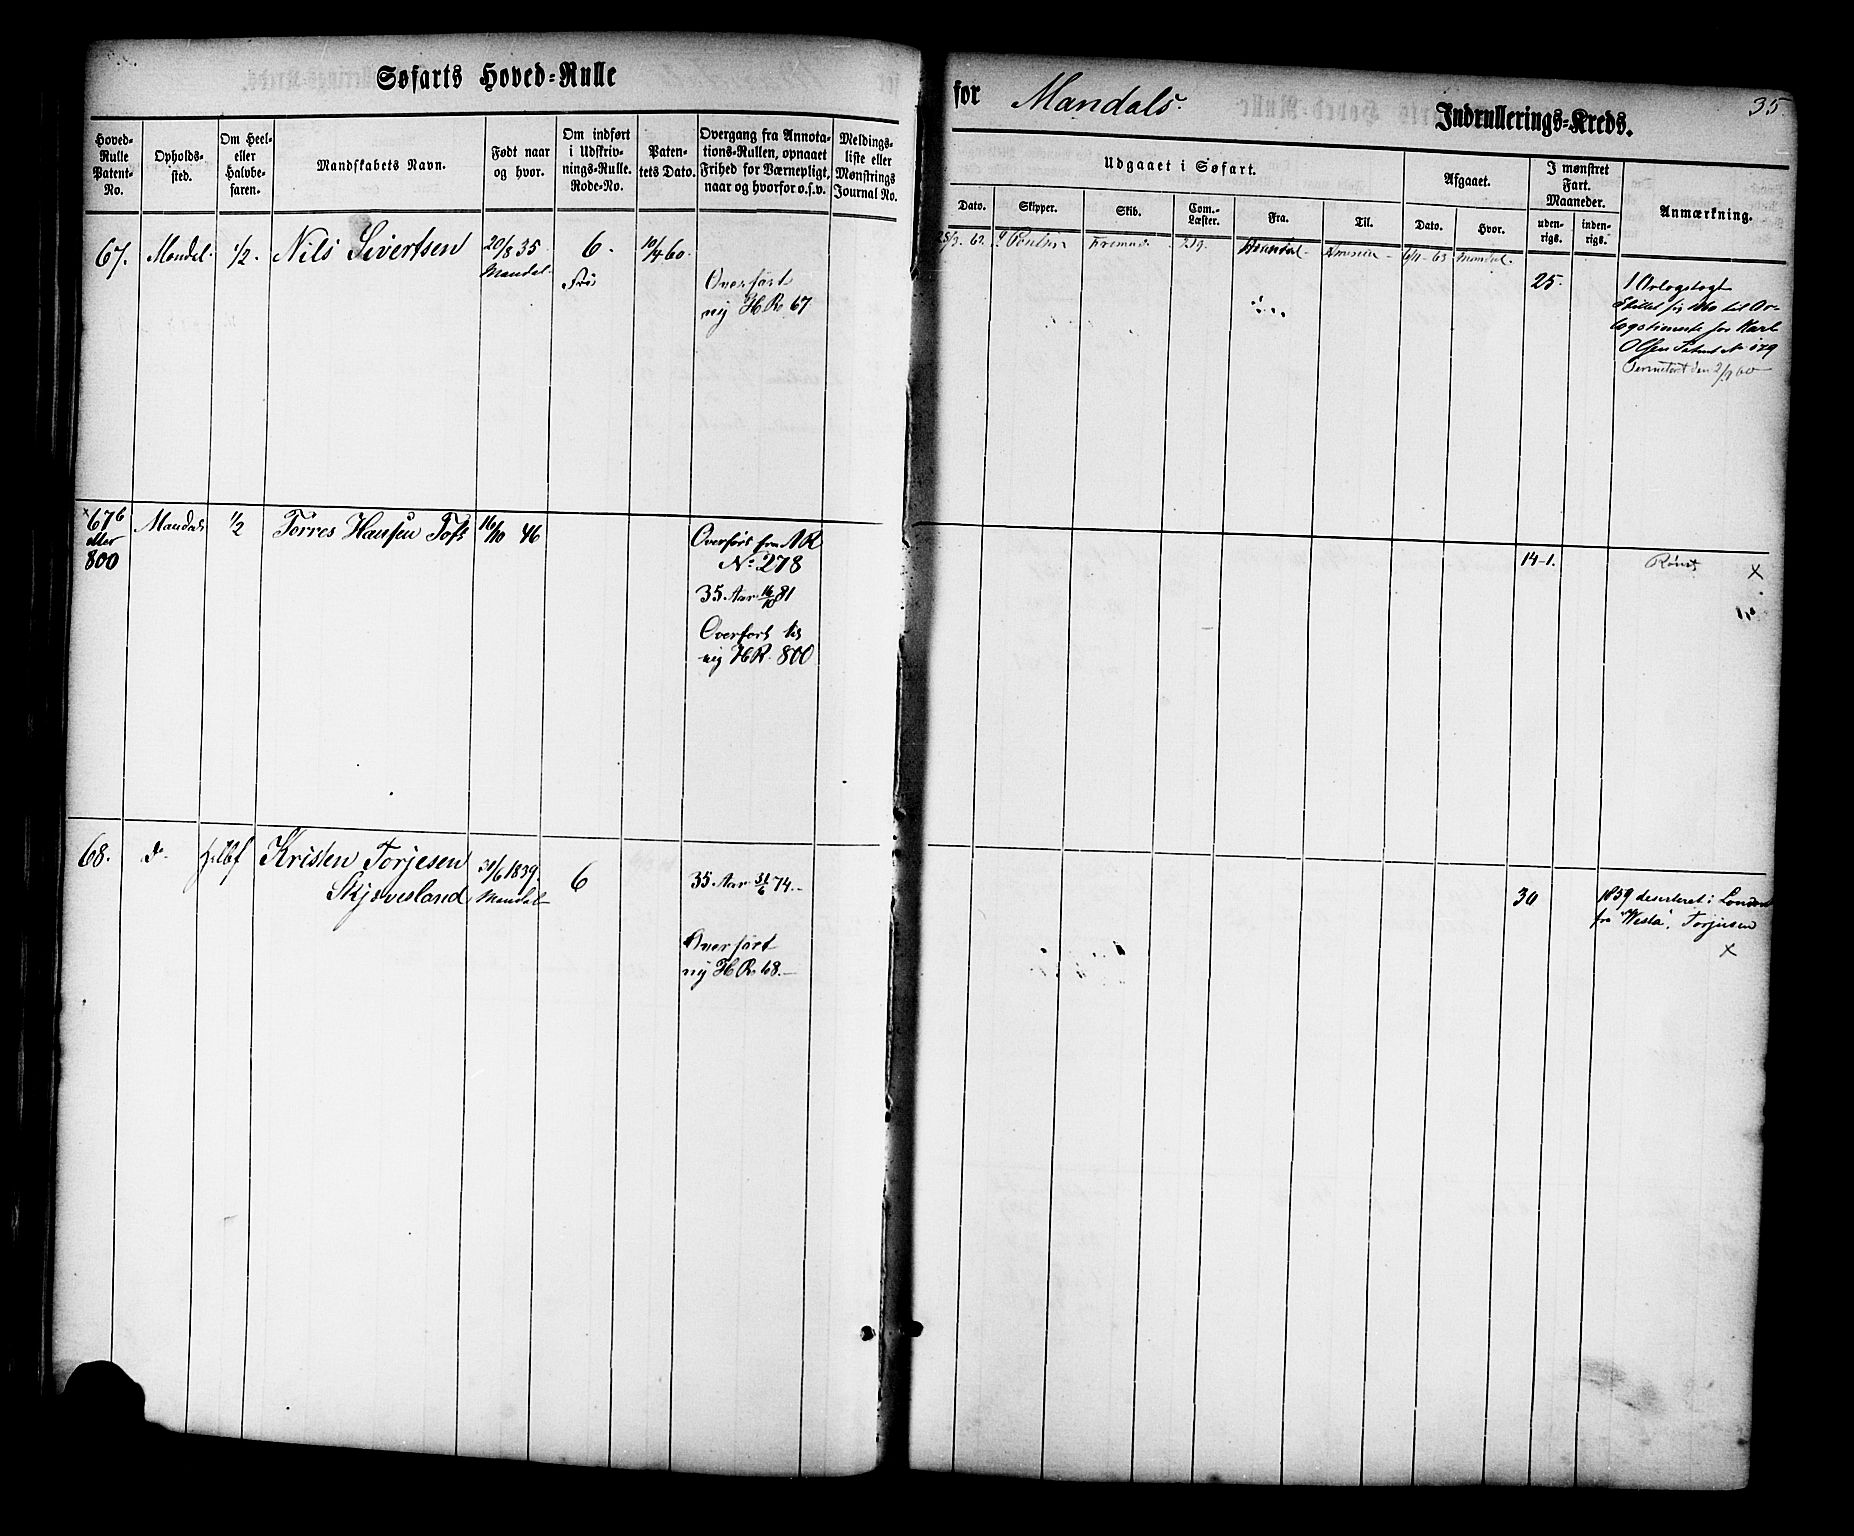 Søfarts Hoved-Rulle
for Mandals. Indrullerings-Kreds.
35.
Hoved-Rulle Patent-No.
Opholds-sted.
Om Heel- eller Halvbe-faren.
Mandskabets Navn.
Født naar og hvor.
Om indført i Udskriv-nings-Rulle. Rode-No.
Paten-tets Dato.
Overgang fra Annota-tions-Rullen, opnaaet Frihed for Værnepligt, naar og hvorfor o.s.v.
Meldings-liste eller Mønstrings Journal No.
Udgaaet i Søfart.
Dato.
Skipper.
Skib.
Com.-Læster.
Fra.
Til.
Afgaaet.
Dato.
Hvor.
I mønstret Fart. Maaneder.
uden-rigs.
inden-rigs.
Anmærkning.
67. Mandal. 1/2. Nils Sivertsen 20/8 35 6. 10/4 60.
Mandal.
Overført
ny H R 67
219. 6/11-63 Mandal.
25.
1 Orlogstogt
Olsen Patent No 179
den 2/9 60
67b Mandal 1/2 Torres Hansen 16/10 46
eller
800
Overført fra A R
No 278
35 Aar 16/10 81
Overført til
ny H R. 800
14-1.
×
68. do. Halbf Kristen Torjesen /6 1839. 6
Skjøvesland Mandal
35 Aar /6 74.
Overført
ny H R. 68.
30 1859 deserteret i London
fra "Vesta". Torjusen
×